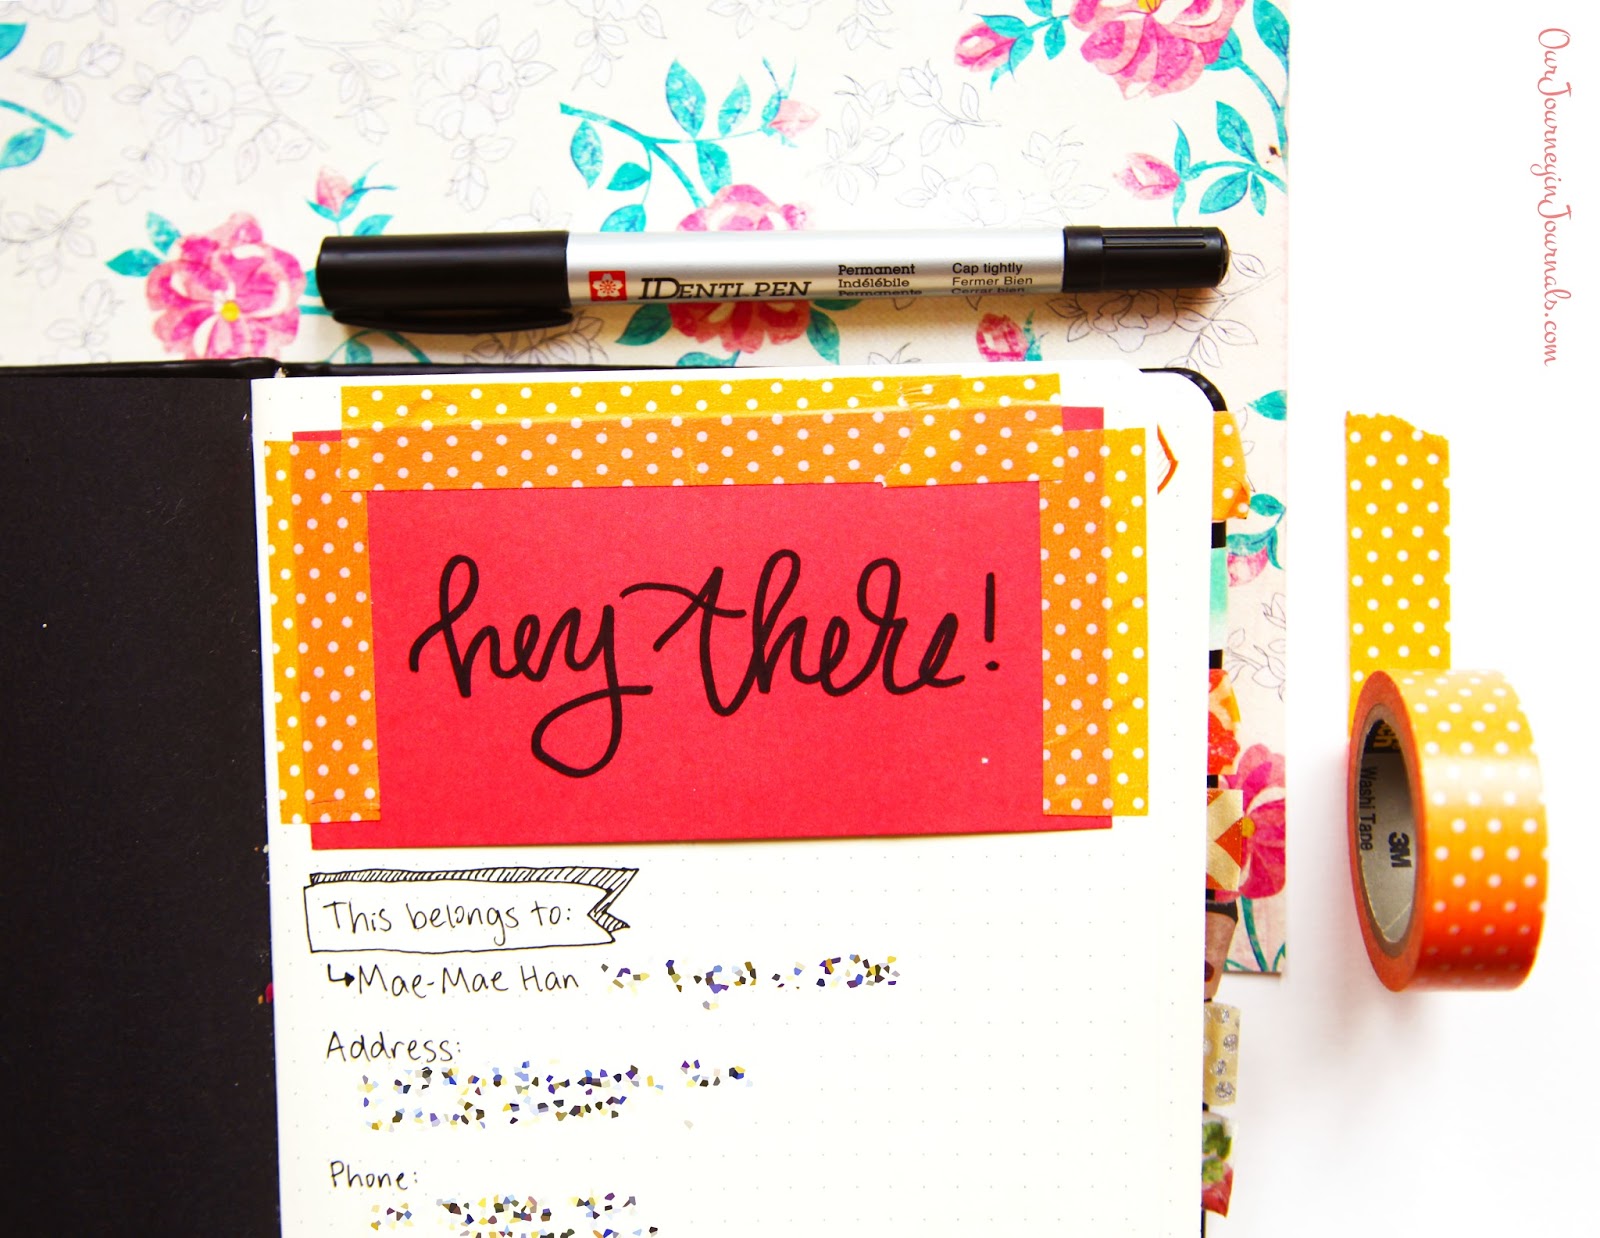 OurJourneyinJournals.com
IDENTI.PEN
Permanent
Indélébile
Permanente
Cap tightly
Fermer Bien
Cerrar bien
hey there!
This belongs to:
Mae-Mae Han
Address:
Phone:
Washi Tape
3M